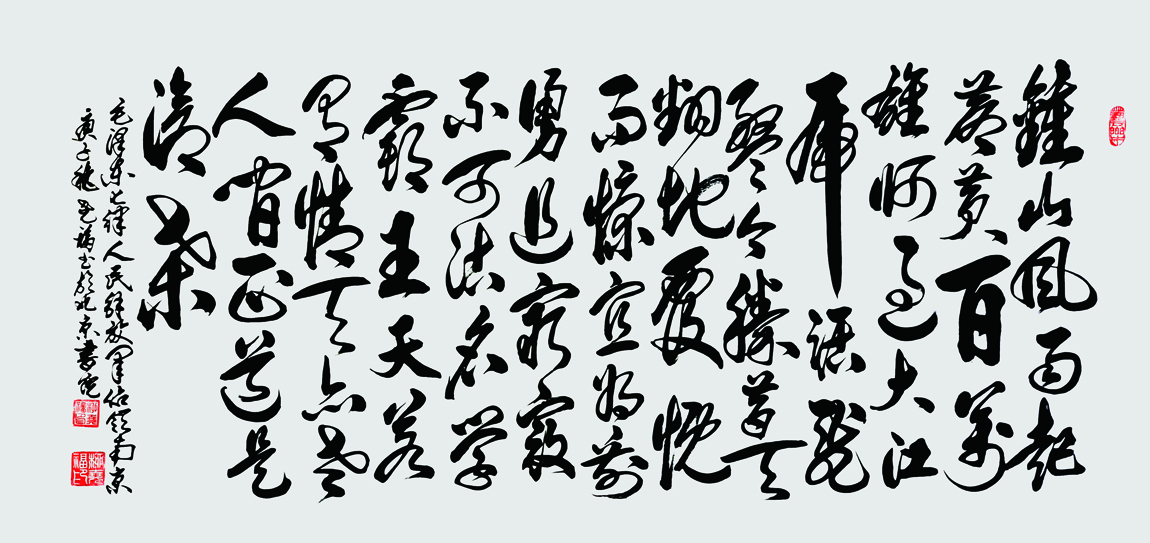 鍾山風雨起
蒼黃百萬
雄师过大江
虎踞龙
盘今勝昔天
翻地覆慨
而慷宜将剩
勇追窮寇
不可沽名学
霸王天若
有情天亦老
人间正道是
滄桑
毛泽东七律人民解放军佔领南京
庚子秋书於北京書院